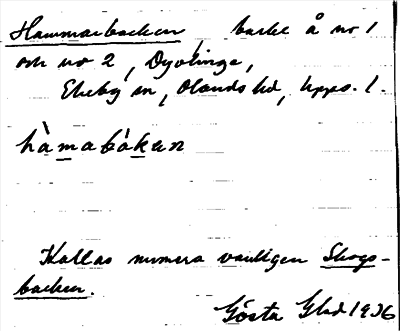 Hammarbacken backe å no 1
och no 2, Dyvlinge,
Ekeby sn, Olands hd, Upps. l.
hàmabákan
Kallas numera vanligen Skogs-
backen.
Gösta Glad 1936